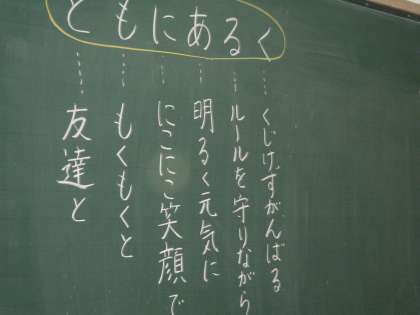 ともにあるく
友達と
もくもくと
にこにこ笑顔で
明るく元気に
ルールを守りながら
くじけずがんばる